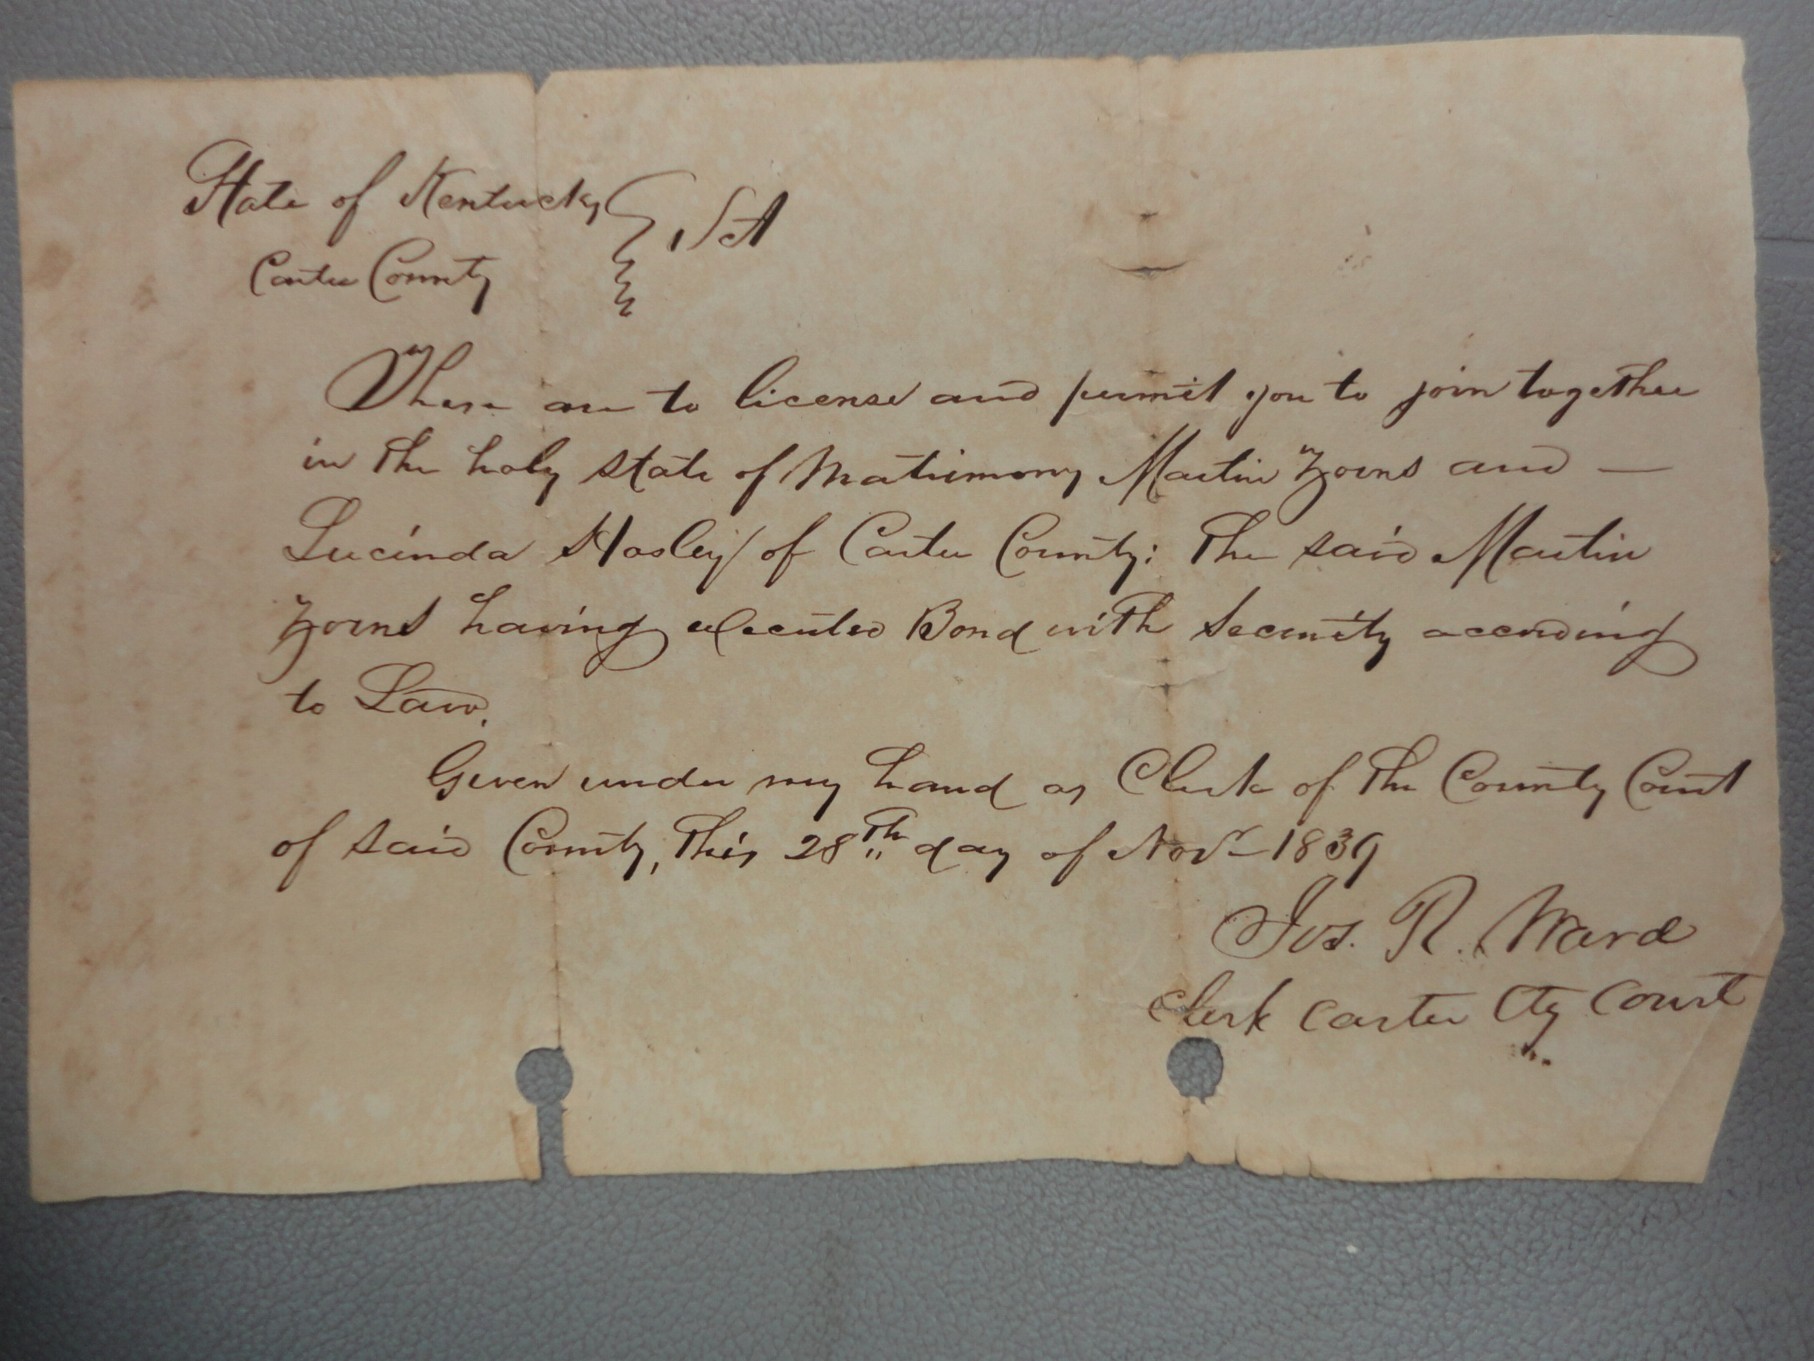 State of Kentucky } Sct
Carter County
These are to license and permit you to join together
in the holy state of Matrimony Martin Zorns and —
Lucinda Hosley of Carter County; The said Martin
Zorns having executed Bond with Security according
to Law.
Given under my hand as Clerk of the County Court
of said County, this 28th day of Novr 1839
Jos. R. Ward
Clerk Carter Cty Court